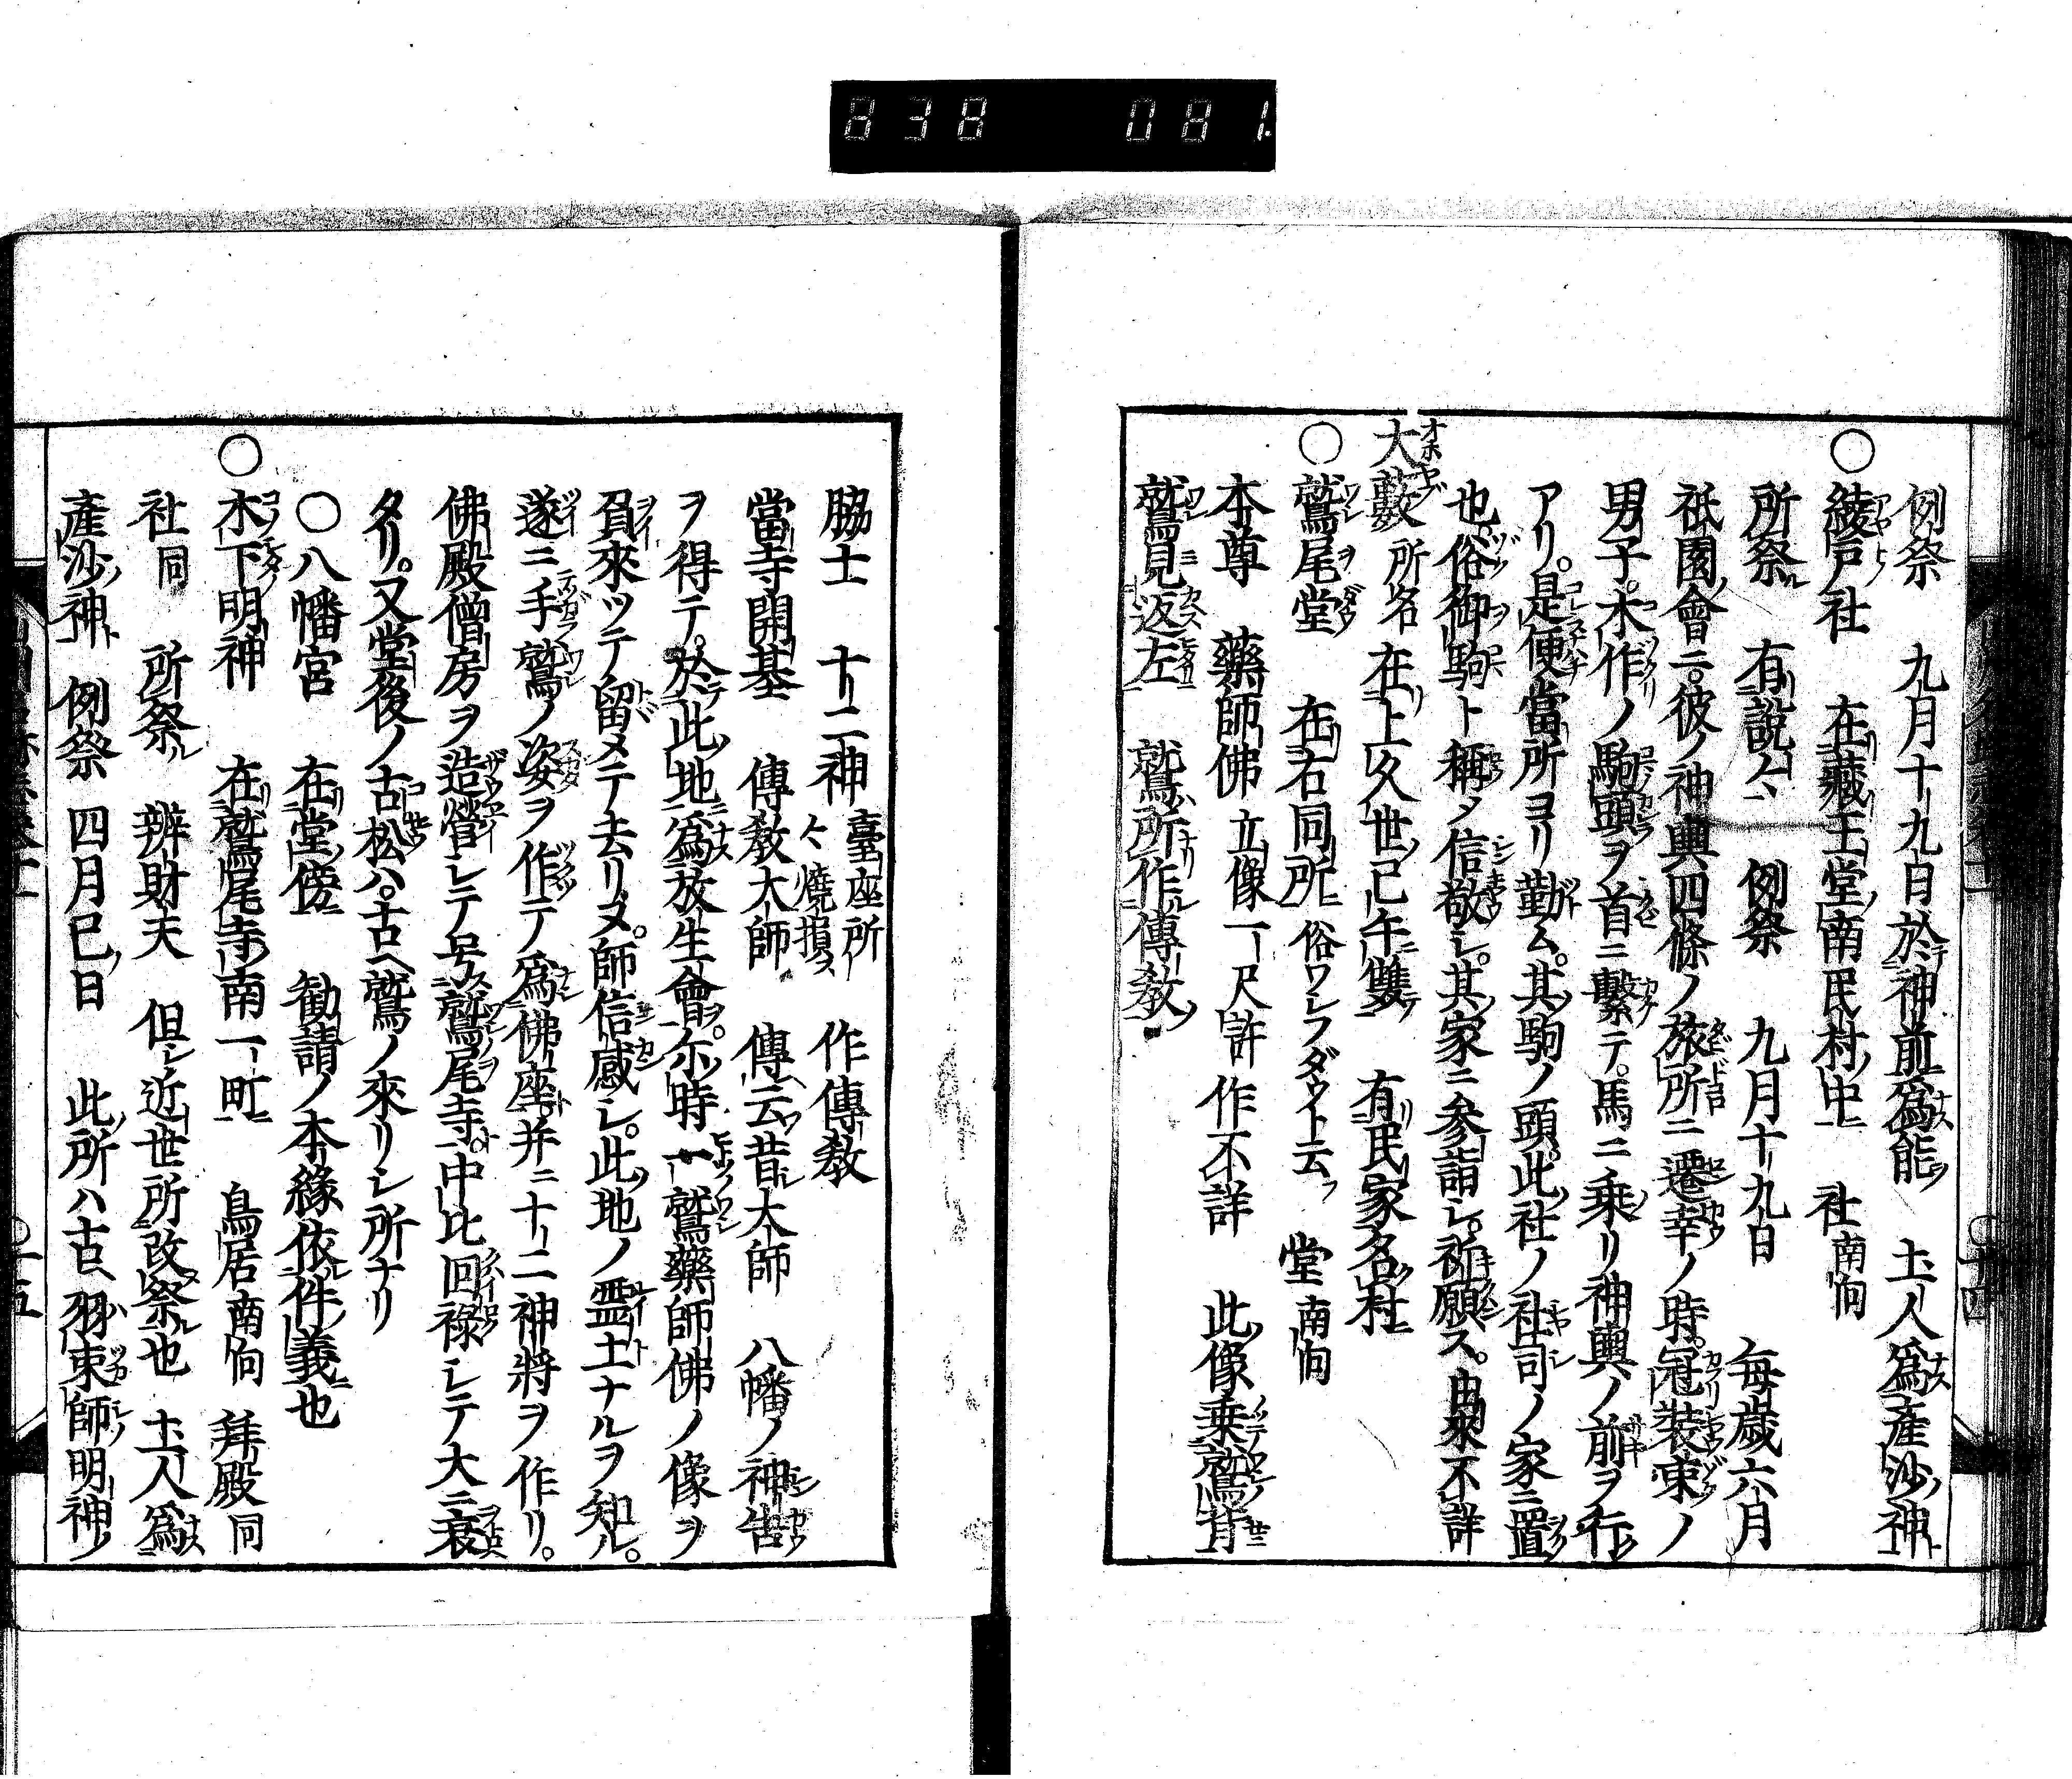 838 081
例祭 九月十九日於神前為能 土人為產沙神
○綾戸社 在藏王堂南民村中 社南向
所祭 有説々 例祭 九月十九日 每歲六月
祇園會ニ彼ノ神輿四條ノ旅所ニ遷幸ノ時冠裝束ノ
男子木作ノ駒頭ヲ首ニ繫テ馬ニ乘リ神輿ノ前ヲ行
アリ是便當所ヨリ勤ム其駒ノ頭此社ノ社司ノ家ニ置
也俗御駒ト稱タ信敬シ其家ニ參詣シ祈願ス由來不詳
大藪 所名 在上久世已午隻 有民家名村
○鷲尾堂 在右同所 俗ワレフダウト云フ 堂南向
本尊 藥師佛立像一尺許 作不詳 此像乘鷲背
鷲見返左 鷲所作傳敎
脇士 十二神臺座所々燒損ス 作傳敎
當寺開基 傳敎大師 傳云昔大師 八幡ノ神告
ヲ得テ於此地為放生會尓時一鷲藥師佛ノ像ヲ
負來ツテ留メテ去リヌ師信感シ此地ノ霊土ナルヲ知ル
遂ニ手鷲ノ姿ヲ作テ為佛座并ニ十二神將ヲ作リ
佛殿僧房ヲ造營シテ号鷲尾寺中比回祿シテ大ニ衰
タリ又堂後ノ古松ハ古ヘ鷲ノ來リシ所ナリ
○八幡宮 在堂傍 勧請ノ本緣依件義也
○木下明神 在鷲尾寺南一町 鳥居南向 拜殿同
社同 所祭 辨財天 但シ近世所改祭也 土人為
產沙神 例祭 四月巳日 此所ハ古ヘ羽束師明神